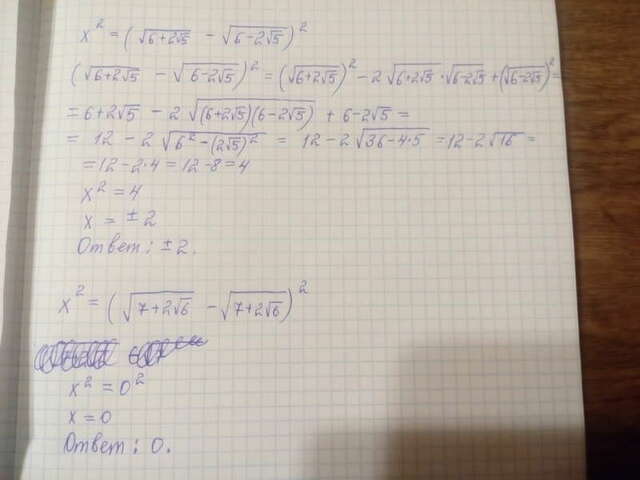 x² = (√(6+2√5) - √(6-2√5))²
(√(6+2√5) - √(6-2√5))² = (√(6+2√5))² - 2√(6+2√5)·√(6-2√5) + (√(6-2√5))² =
= 6+2√5 - 2√((6+2√5)(6-2√5)) + 6-2√5 =
= 12 - 2√(6²-(2√5)²) = 12-2√(36-4·5) = 12-2√16 =
= 12-2·4 = 12-8 = 4
x² = 4
x = ±2
Ответ: ±2.
x² = (√(7+2√6) - √(7+2√6))²
x² = 0²
x = 0
Ответ: 0.